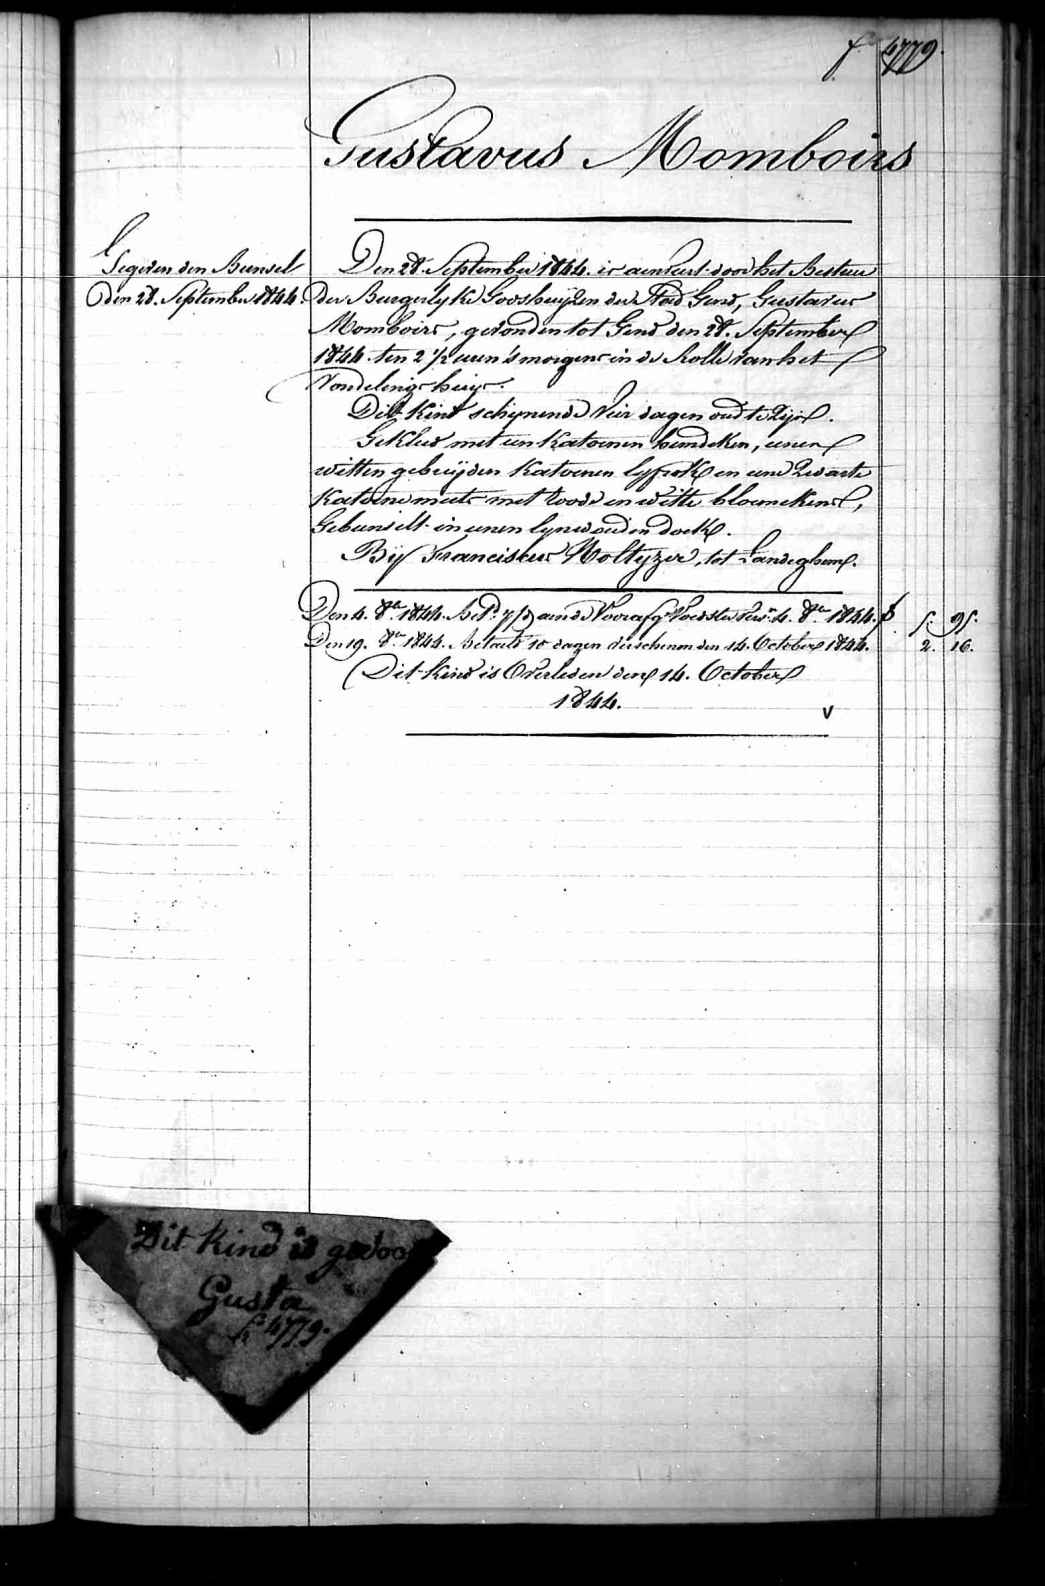 f.° 4779.
Gustavus Momboirs
Gegeven den Bunsel
den 28. September 1844.
Den 28. September 1844. is aenveert door het Bestuer
der Burgerlyke Godshuijzen der Stad Gend, Gustavus
Momboirs, gevonden tot Gend den 28. September
1844. ten 2 1/2 uren 's morgens in de Rolle van het
Vondelingshuijs.
Dit kind schynende vier dagen oud te Zijn.
Gekleed met een katoenen hemdeken, eenen
witten gebreijden katoenen lyfrok en eene Zwarte
katoene muts met roode en witte bloemekens,
Gebunselt in eenen lynwouden doek.
Bij Franciscus Noltyzer, tot Landeghem.
Den 4. 8.er 1844. Bet.d aen de Voedster 4. 8.er 1844. 5. 95.
Den 19. 8.er 1844. Betaelt 10 dagen verschenen den 14. October 1844. 2. 16.
Dit kind is Overleden den 14. October
1844.
V
Dit kind is gedoo
Gusta
f.° 4779.